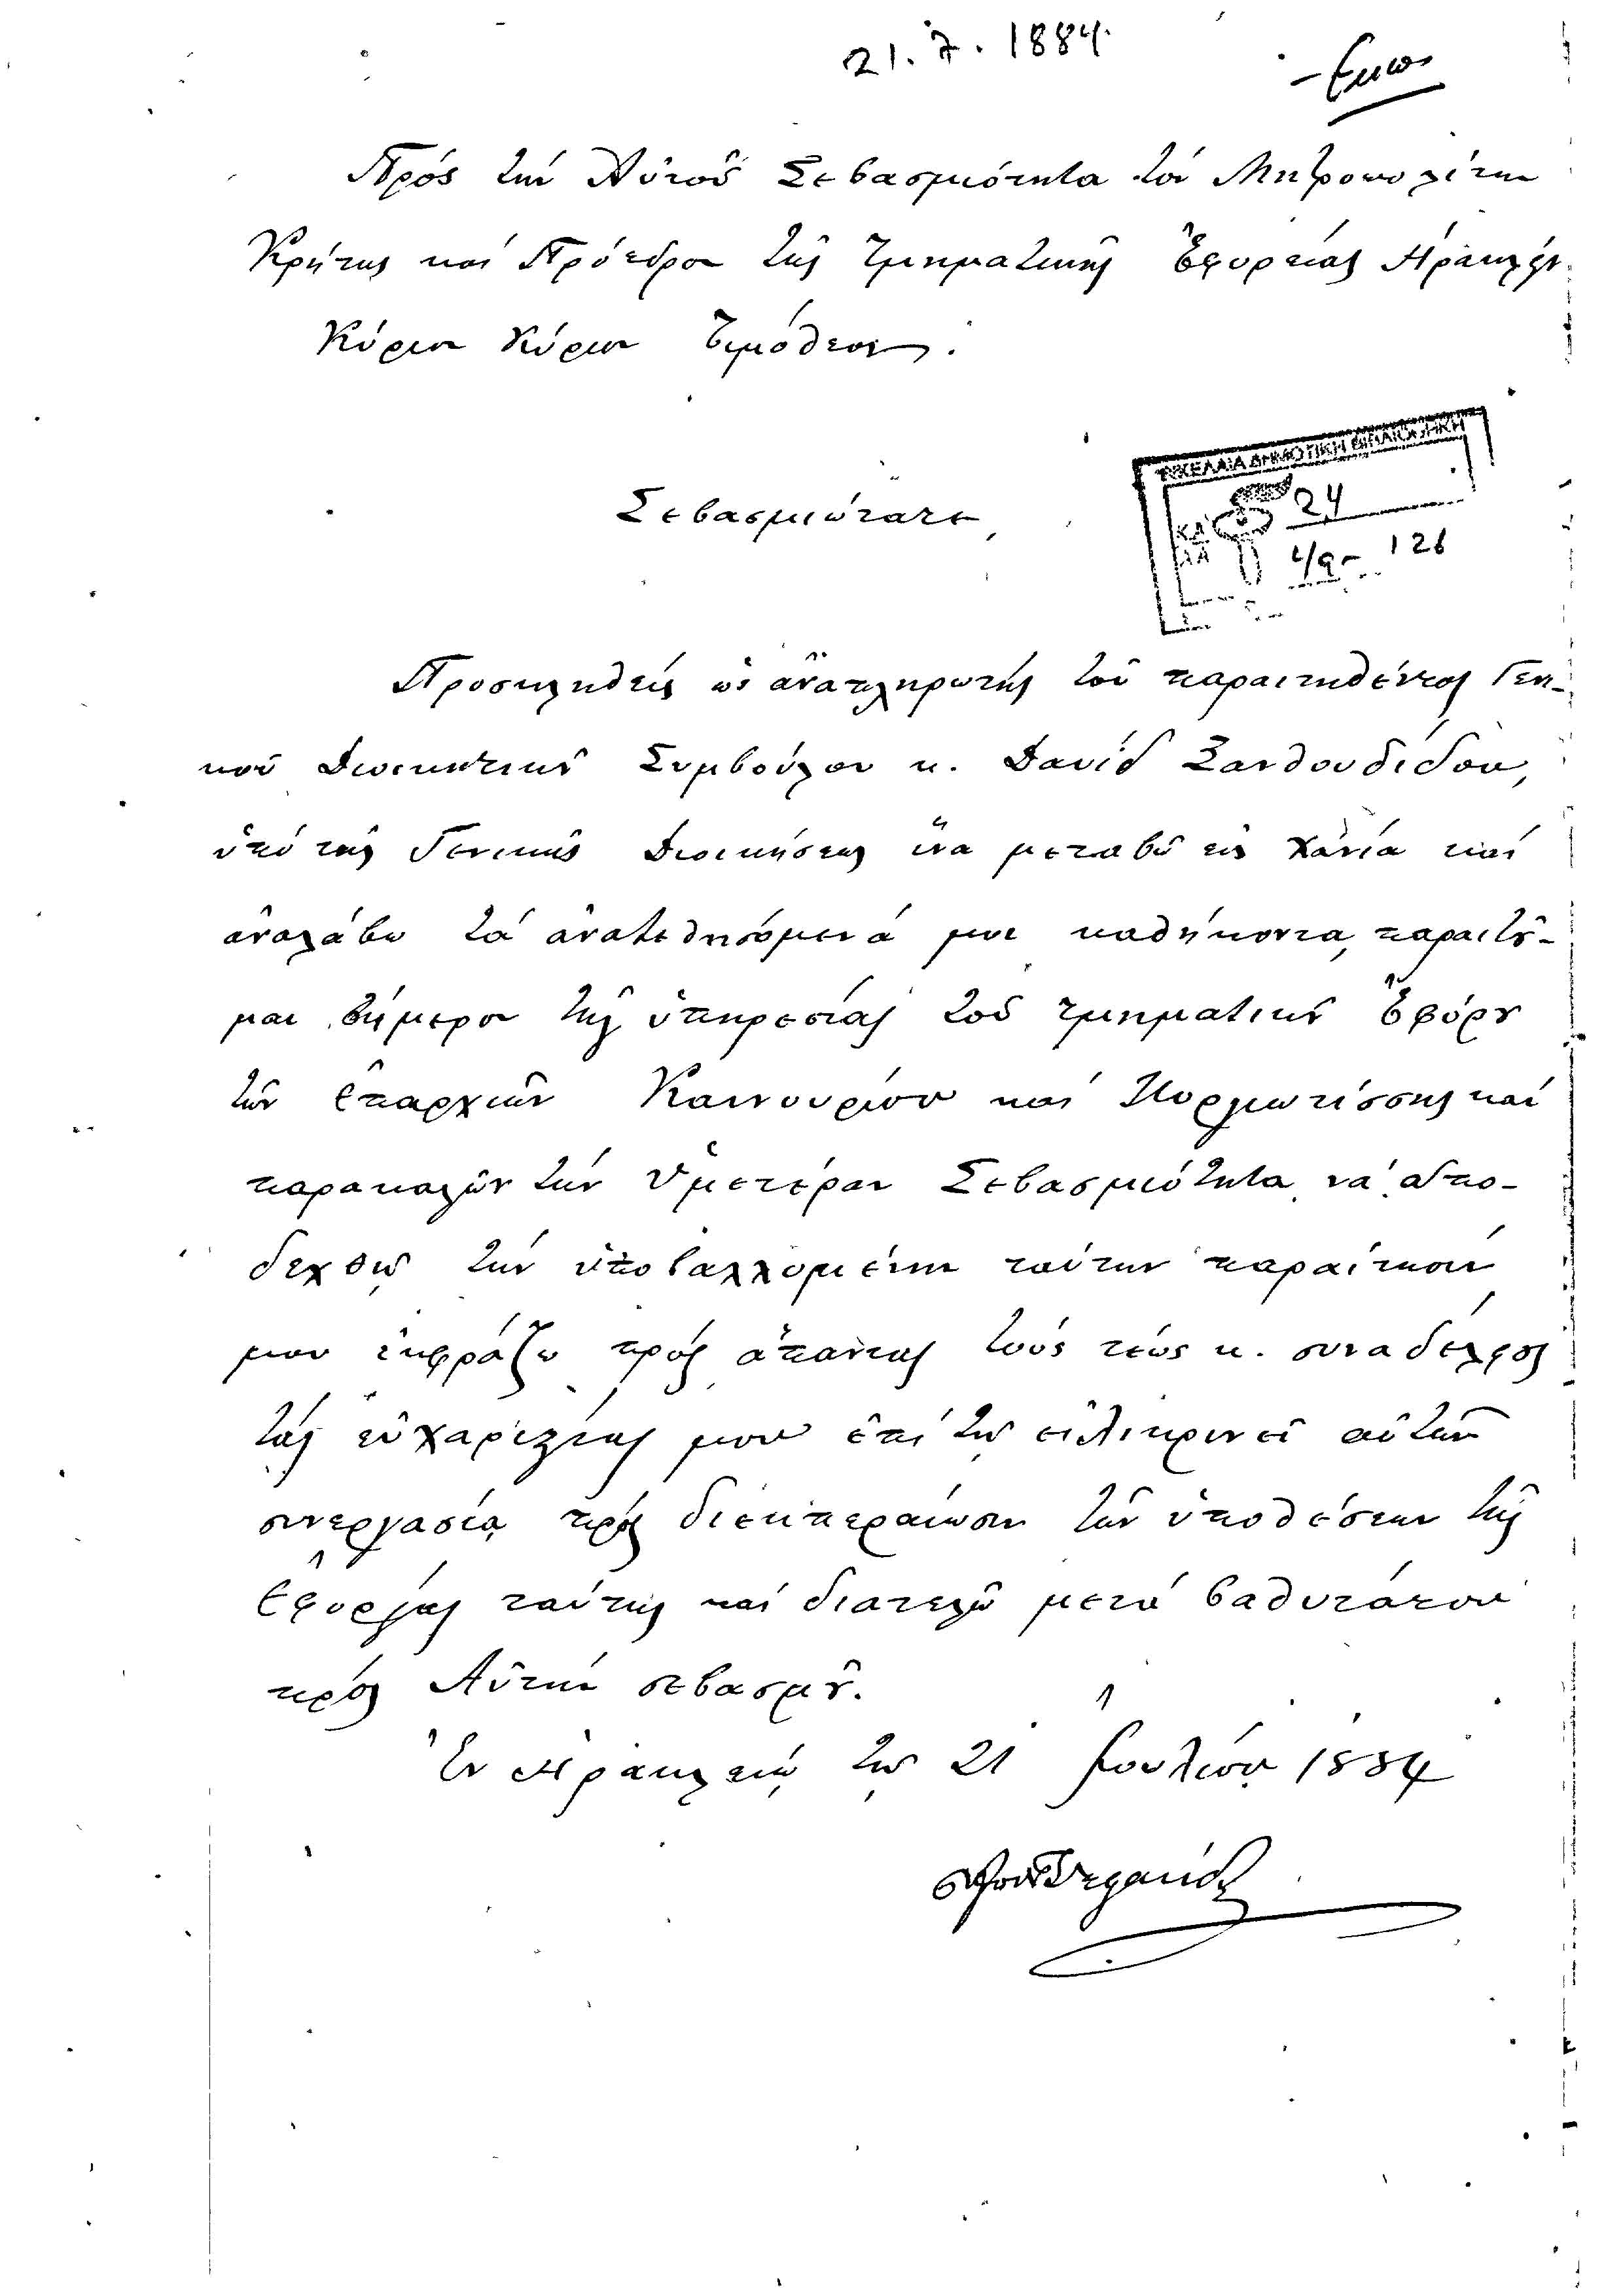 21. 7. 1884.
Πρός τήν Αὐτοῦ Σεβασμιότητα τόν Μητροπολίτην
Κρήτης καί Πρόεδρον τῆς Τμηματικῆς Ἐφορείας Ἡρακλείου
Κύριον Κύριον Τιμόθεον.
ΒΙΚΕΛΑΙΑ ΔΗΜΟΤΙΚΗ ΒΙΒΛΙΟΘΗΚΗ
24
126
Σεβασμιώτατε,
Προσκληθείς ὡς ἀναπληρωτής τοῦ παραιτηθέντος Γενι-
κοῦ Διοικητικοῦ Συμβούλου κ. Δαυίδ Ξανθουδίδου,
ὑπό τῆς Γενικῆς Διοικήσεως ἵνα μεταβῶ εἰς Χανία καί
ἀναλάβω τά ἀνατεθησόμενά μοι καθήκοντα, παραιτοῦ-
μαι σήμερον τῆς ὑπηρεσίας τοῦ τμηματικοῦ Ἐφόρου
τῶν ἐπαρχιῶν Καινουρίου καί Πυργιωτίσσης καί
παρακαλῶν τήν Ὑμετέραν Σεβασμιότητα νά ἀπο-
δεχθῇ τήν ὑποβαλλομένην ταύτην παραίτησίν
μου ἐκφράζω πρός ἅπαντας τούς τέως κ. συναδέλφους
τάς εὐχαριστίας μου ἐπί τῇ εἰλικρινεῖ αὐτῶν
συνεργασίᾳ πρός διεκπεραίωσιν τῶν ὑποθέσεων τῆς
Ἐφορείας ταύτης καί διατελῶ μετά βαθυτάτου
πρός Αὐτήν σεβασμοῦ.
Ἐν Ἡρακλείῳ τῇ 21 Ἰουλίου 1884